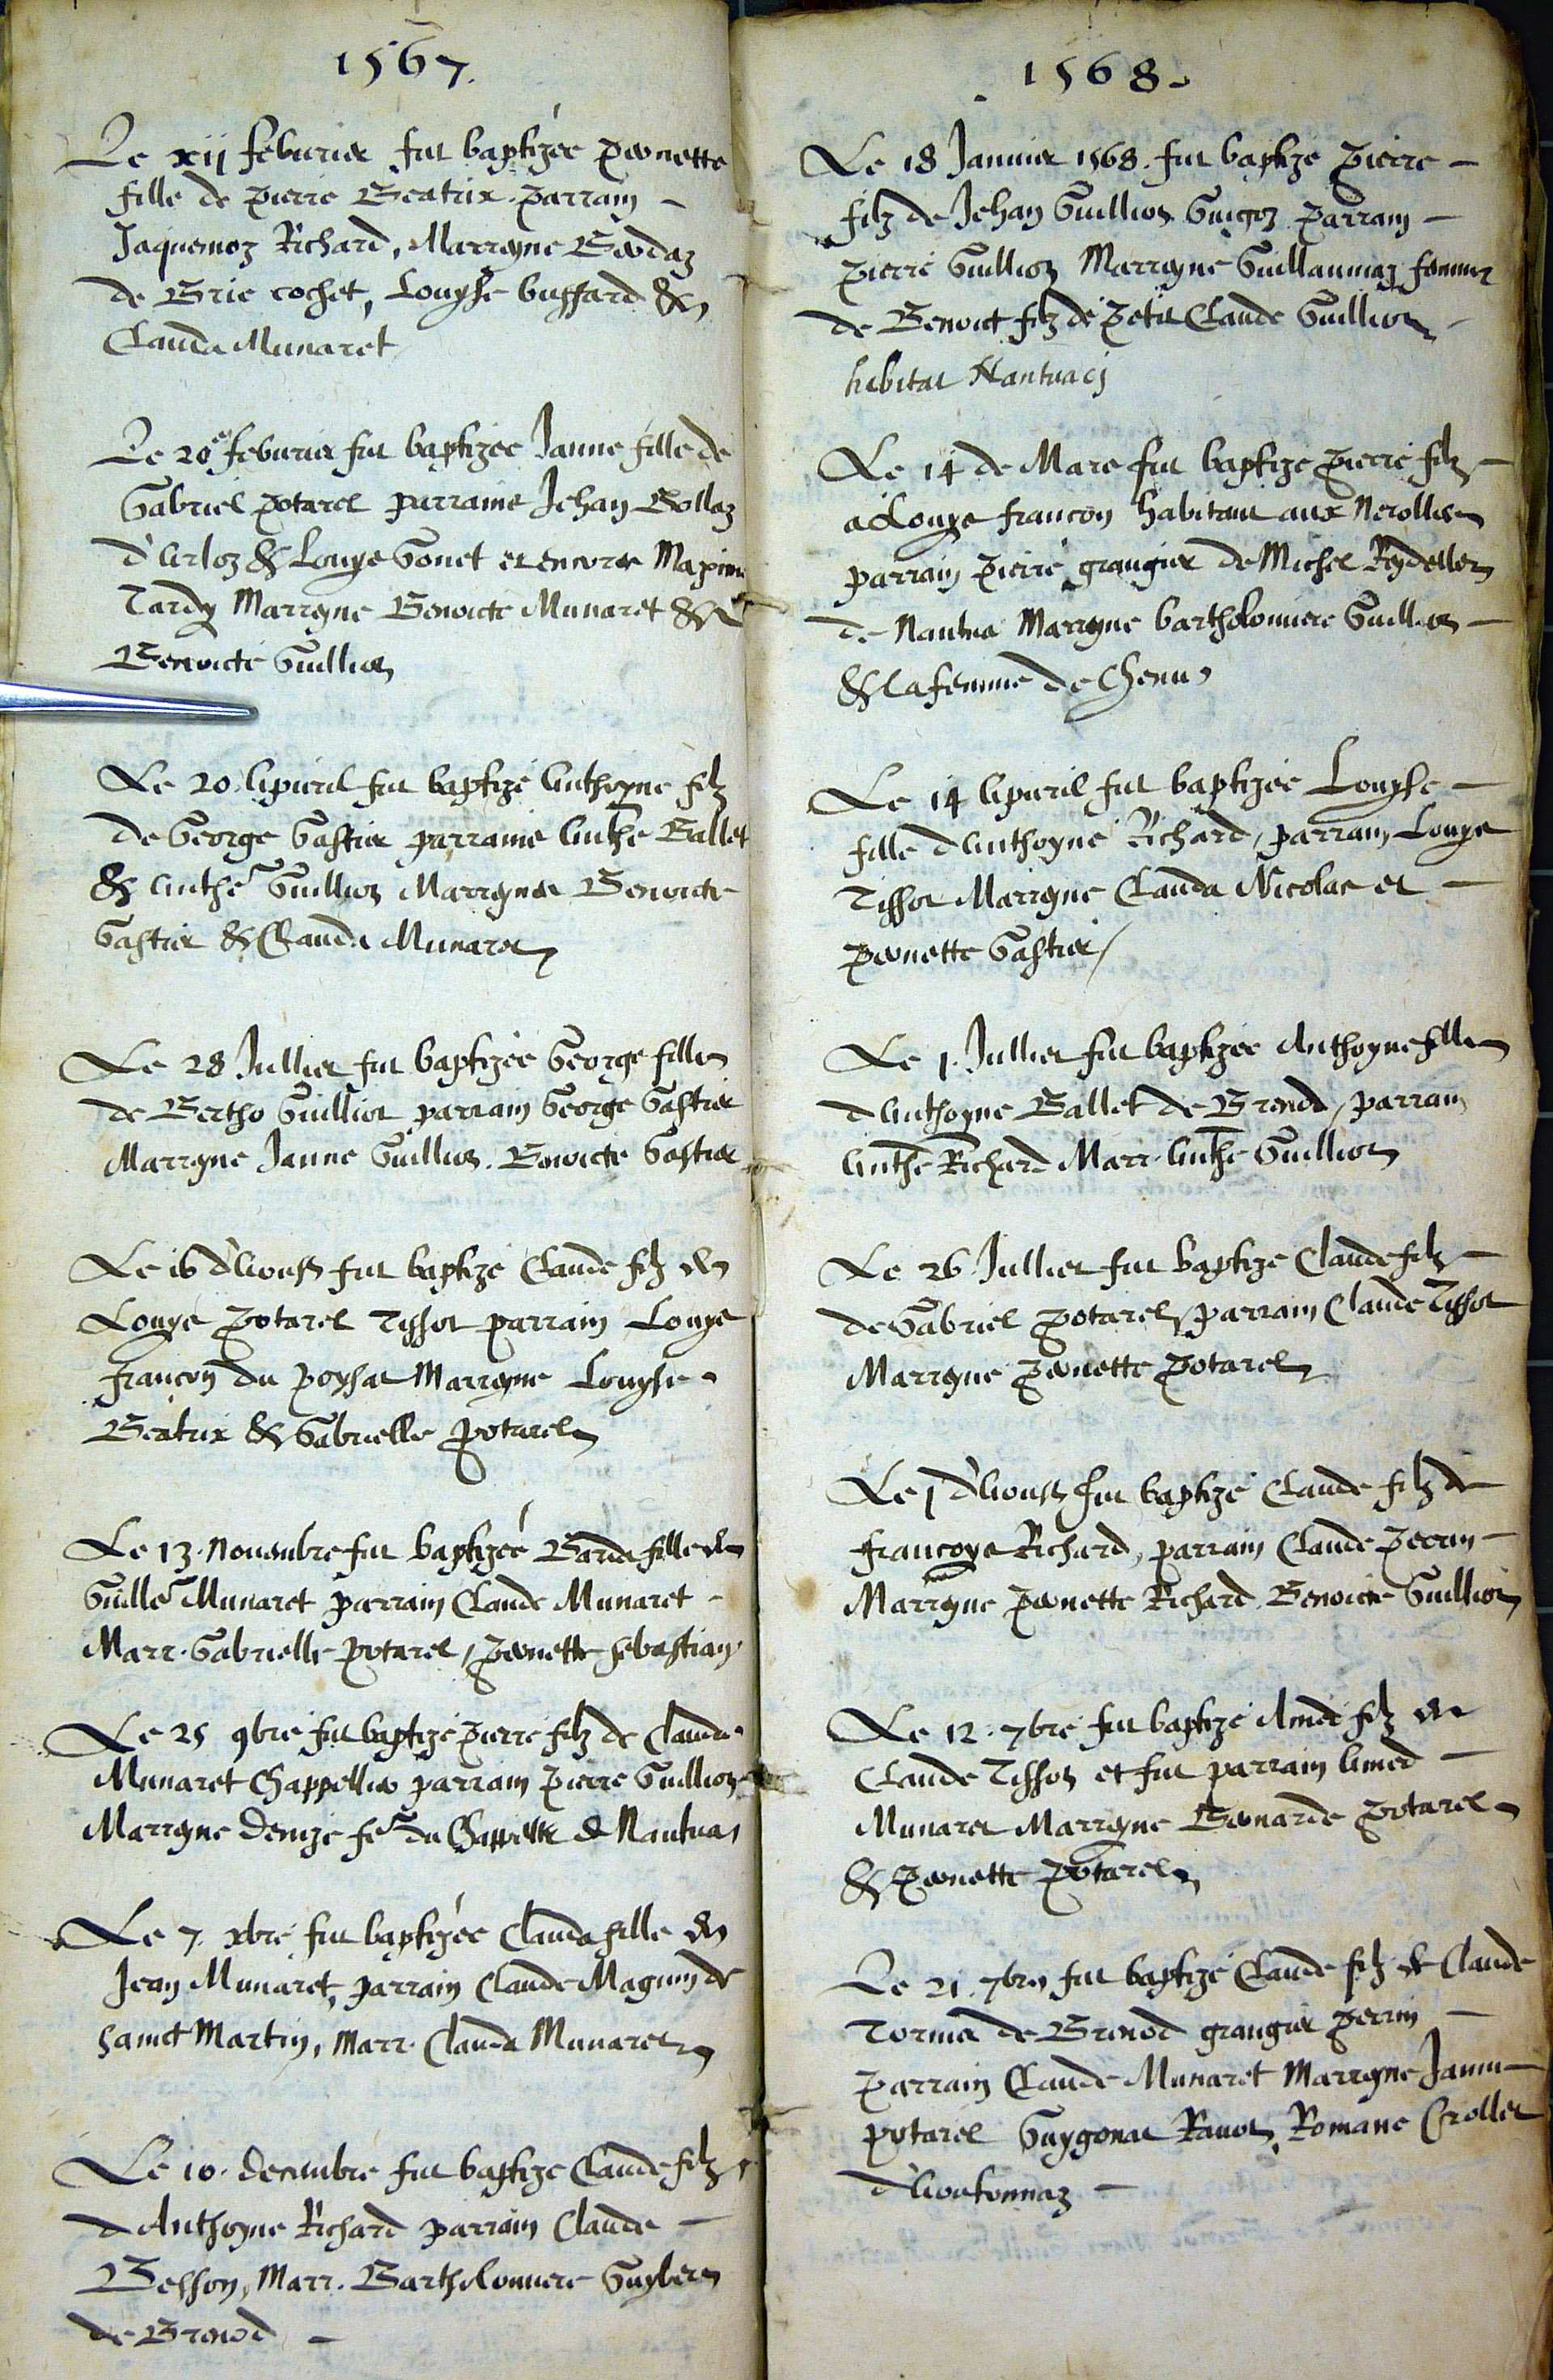 1567.
Le xij febvrier fut baptizée Pernette
fille de Pierre Beatrix. Parrain
Jaquemoz Richard, Marryne
de Brie cochet, Louyse buffard &
Clauda Munaret
Le 20e febvrier fut baptizée Janne fille de
Gabriel Potarel parraine Jehan
& Louys Gonet et encores
Tardy Marryne Benoicte Munaret &
Benoicte Guillion
Le 20 Apvril fut baptizé Anthoyne filz
de George Gastier parraine Anthe Ballet
& Anthe Guillion Marrynes Benoicte
Gastier & Clauda Munaret
Le 28 Jullier fut baptizée George fille
de Bertho Guilliot parrain George Gastier
Marryne Janne Guillion. Benoicte Gastier
Le 16 d'Aoust fut baptizé Claude filz de
Louys Potarel Tissot parrain Louys
françon du poysat Marryne Louyse
Beatrix & Gabrielle potarel
Le 13. Novembre fut baptizée Barda fille de
Guille Munaret parrain Claude Munaret
Marr. Gabrielle potarel, Pernette sebastian
Le 25 9bre fut baptizé Pierre filz de Claude
Munaret parrain Pierre Guillion
Marryne denize fe du de Nantua
Le 7. xbre fut baptizée Clauda fille de
Jean Munaret, parrain Claude Magnin de
sainct Martin, Marr. Clauda Munaret
Le 10. decembre fut baptizé Claude filz
d Anthoyne Richard parrain Claude
Besson, Marr. Bartholomiere
de Brenod
1568.
Le 18 Janvier 1568. fut baptizé Pierre
filz de Jehan Guillion Guigoz parrain
Pierre Guillion Marryne Guillaumaz femme
de Benoict filz de Petit Claude Guillion
habitat Nantuaci
Le 14 de Mars fut baptizé Pierre filz
a Louys françon habitant aux Nerolles
parrain Pierre grangier de Michel Reydellet
de Nantua Marryne bartholomiere Guillion
& la femme de
Le 14 Apvril fut baptizée Louyse
fille d Anthoyne Richard, parrain Louys
Tissot Marryne Clauda Nicolas et
Pernette Gastier
Le 1. Jullier fut baptizée Anthoyne fille
d Anthoyne Ballet de Brenod, parrain
Anthe Richard Marr. Anthe Guillion
Le 26 Jullier fut baptizé Claude filz
de Gabriel Potarel, parrain Claude Tissot
Marryne Pernette Potarel
Le 1 d'Aoust fut baptizé Claude filz de
françoys Richard, parrain Claude Perrin
Marryne Pernette Richard Benoicte Guillion
Le 12. 7bre fut baptizé Amed filz de
Claude Tissot et fut parrain Amed
Munaret Marryne Bernarde Potarel
& Pernette Potarel
Le 21. 7bre fut baptizé Claude filz de Claude
de Brenod grangier Perrin
Parrain Claude Munaret Marryne Janne
potarel Guygonat Ravot, Romane